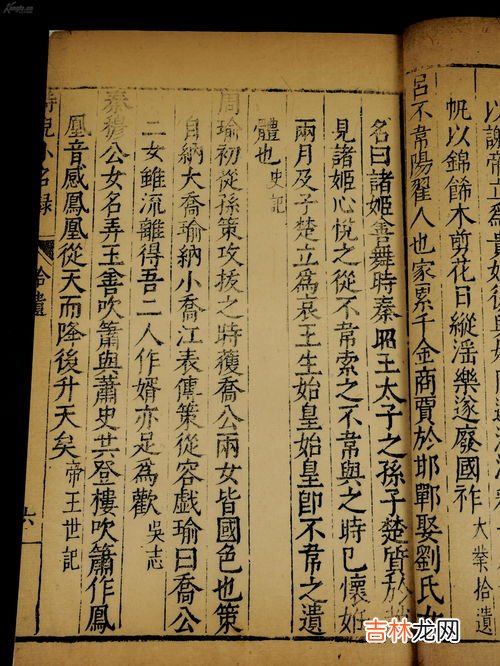 帝立爲貴
帆以錦飾木剪花日縱滛樂遂廢國祚 大業拾遺
呂不韋陽翟人也家累千金商賈於邯鄲娶劉氏女
名曰諸姬善舞時秦昭王太子之孫子楚質於
見諸姬心悅之從不韋索之不韋與之時已懷姙
兩月及子楚立爲哀王生始皇始皇即不韋之遺
體也 史記
周瑜初從孫策攻拔之時獲喬公兩女皆國色也策
自納大喬瑜納小喬江表傳策從容戲瑜曰喬公
二女雖流離得吾二人作婿亦足爲歡 吳志
秦穆公女名弄玉善吹簫與蕭史共登樓吹簫作鳳
凰音感鳳凰從天而降後升天矣 帝王世記
侍兒小名錄 拾遺 六
吉林龙网